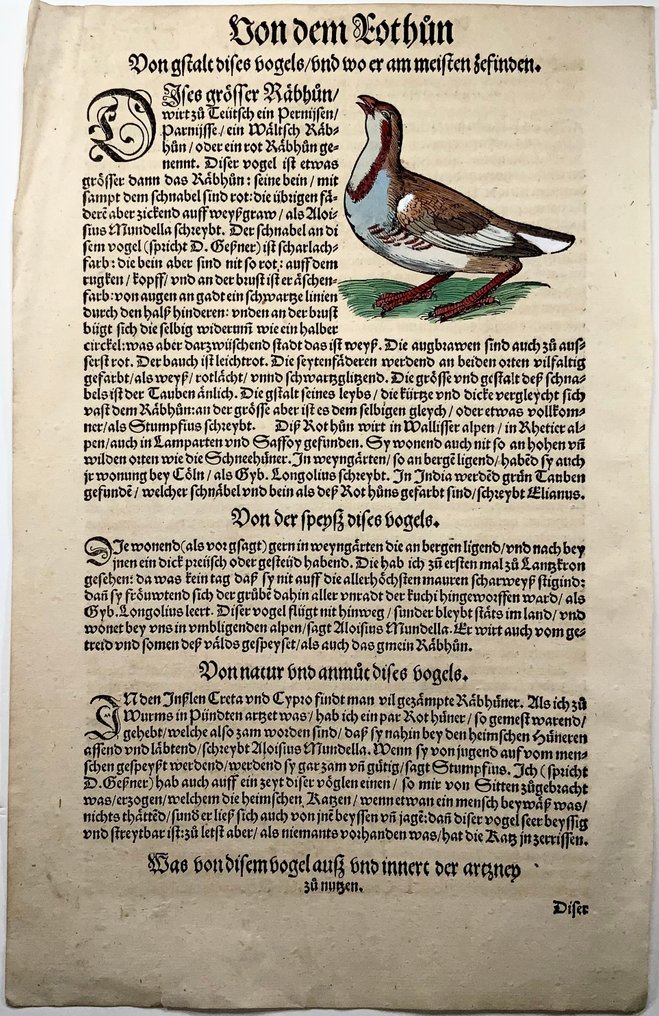 Von dem Rothůn
Von gstalt dises vogels/vnd wo er am meisten zefinden.
DJses grösser Räbhůn/
wirt zů Teütsch ein Pernijsen/
Parnijsse/ein Wältsch Räb-
hůn/oder ein rot Räbhůn ge-
nennt. Diser vogel ist etwas
grösser dann das Räbhůn: seine bein/mit
sampt dem schnabel sind rot: die übrigen fä-
derē aber zickend auff weyßgraw/als Aloi-
sius Mundella schreybt. Der schnabel an di
sem vogel (spricht D. Geßner) ist scharlach-
farb: die bein aber sind nit so rot: auff dem
rugken/kopff/vnd an der brust ist er äschen-
farb: von augen an gadt ein schwartze linien
durch den halß hinderen: vnden an der brust
bügt sich die selbig widerum̄ wie ein halber
circkel: was aber darzwüschend stadt das ist weyß. Die augbrawen sind auch zů aus-
serst rot. Der bauch ist leichtrot. Die seytenfäderen werdend an beiden orten vilfaltig
gefarbt/als weyß/rotlächt/vnnd schwartzglitzend. Die grösse vnd gestalt deß schna-
bels ist der Tauben änlich. Die gstalt seines leybs/die kürtze vnd dicke vergleycht sich
vast dem Räbhůn: an der grösse aber ist es dem selbigen gleych/oder etwas vollkom-
ner/als Stumpfius schreybt. Diß Rot hůn wirt in Wallisser alpen/in Rhetier al-
pen/auch in Lamparten vnd Saffoy gefunden. Sy wonend auch nit so an hohen vn̄
wilden orten wie die Schneehüner. Jn weyngärten/so an bergē ligend/habēd sy auch
jr wonung bey Cöln/als Gyb. Longolius schreybt. Jn Jndia werdēd grün Tauben
gefundē/welcher schnäbel vnd bein als deß Rot hůns gefarbt sind/schreybt Elianus.
Von der speysz dises vogels.
DJe wonend (als vor gsagt) gern in weyngärten die an bergen ligend/vnd nach bey
jnen ein dick preisch oder gesteüd habend. Die hab ich zů ersten mal zů Lantzkron
gesehen: da was kein tag daß sy nit auff die allerhöchsten mauren scharweyß stigind:
dan̄ sy fröuwtend sich der grůbē dahin aller vnradt der kuchi hingeworffen ward/als
Gyb. Longolius leert. Diser vogel flügt nit hinweg/sunder bleybt stäts im land/vnd
wonet bey vns in vmbligenden alpen/sagt Aloisius Mundella. Er wirt auch vom ge-
treid vnd somen deß välds gespeyset/als auch das gmein Räbhůn.
Von natur vnd anmůt dises vogels.
JN den Jnßlen Creta vnd Cypro findt man vil gezämpte Räbhüner. Als ich zů
Wurms in Pündten artzet was/hab ich ein par Rot hüner/so gemest warend/
gehebt/welche also zam worden sind/daß sy nahin bey den heimschen Hüneren
assend vnd läbtend/schreybt Aloisius Mundella. Wenn sy von jugend auf vom men-
schen gespeyßt werdend/werdend sy gar zam vn̄ gütig/sagt Stumpfius. Jch (spricht
D. Geßner) hab auch auff ein zeyt diser vöglen einen/so mir von Sitten zůgebracht
was/erzogen/welchem die heimschen Katzen/wenn etwan ein mensch beywäß was/
nichts thättēd/sund er ließ sich auch von jnē beyssen vn̄ jagē: dan̄ diser vogel seer beyssig
vnd streytbar ist: zů letst aber/als niemants vorhanden was/hat die Katz jn zerrissen.
Was von disem vogel ausz vnd innert der artzney
zů nutzen.
Diser